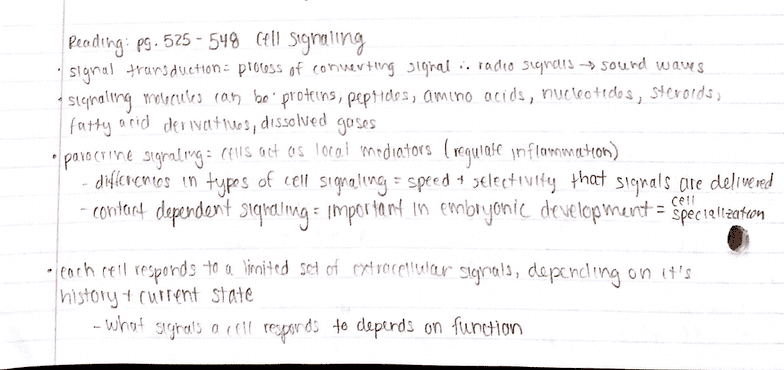 Reading: pg. 525-548 Cell Signaling
· signal transduction = process of converting signal ∴ radio signals → sound waves
· signaling molecules can be: proteins, peptides, amino acids, nucleotides, steroids,
fatty acid derivatives, dissolved gases
· paracrine signaling = cells act as local mediators (regulate inflammation)
- differences in types of cell signaling = speed + selectivity that signals are delivered
- contact dependent signaling = important in embryonic development = cell specialization
· each cell responds to a limited set of extracellular signals, depending on it's
history + current state
- what signals a cell responds to depends on function